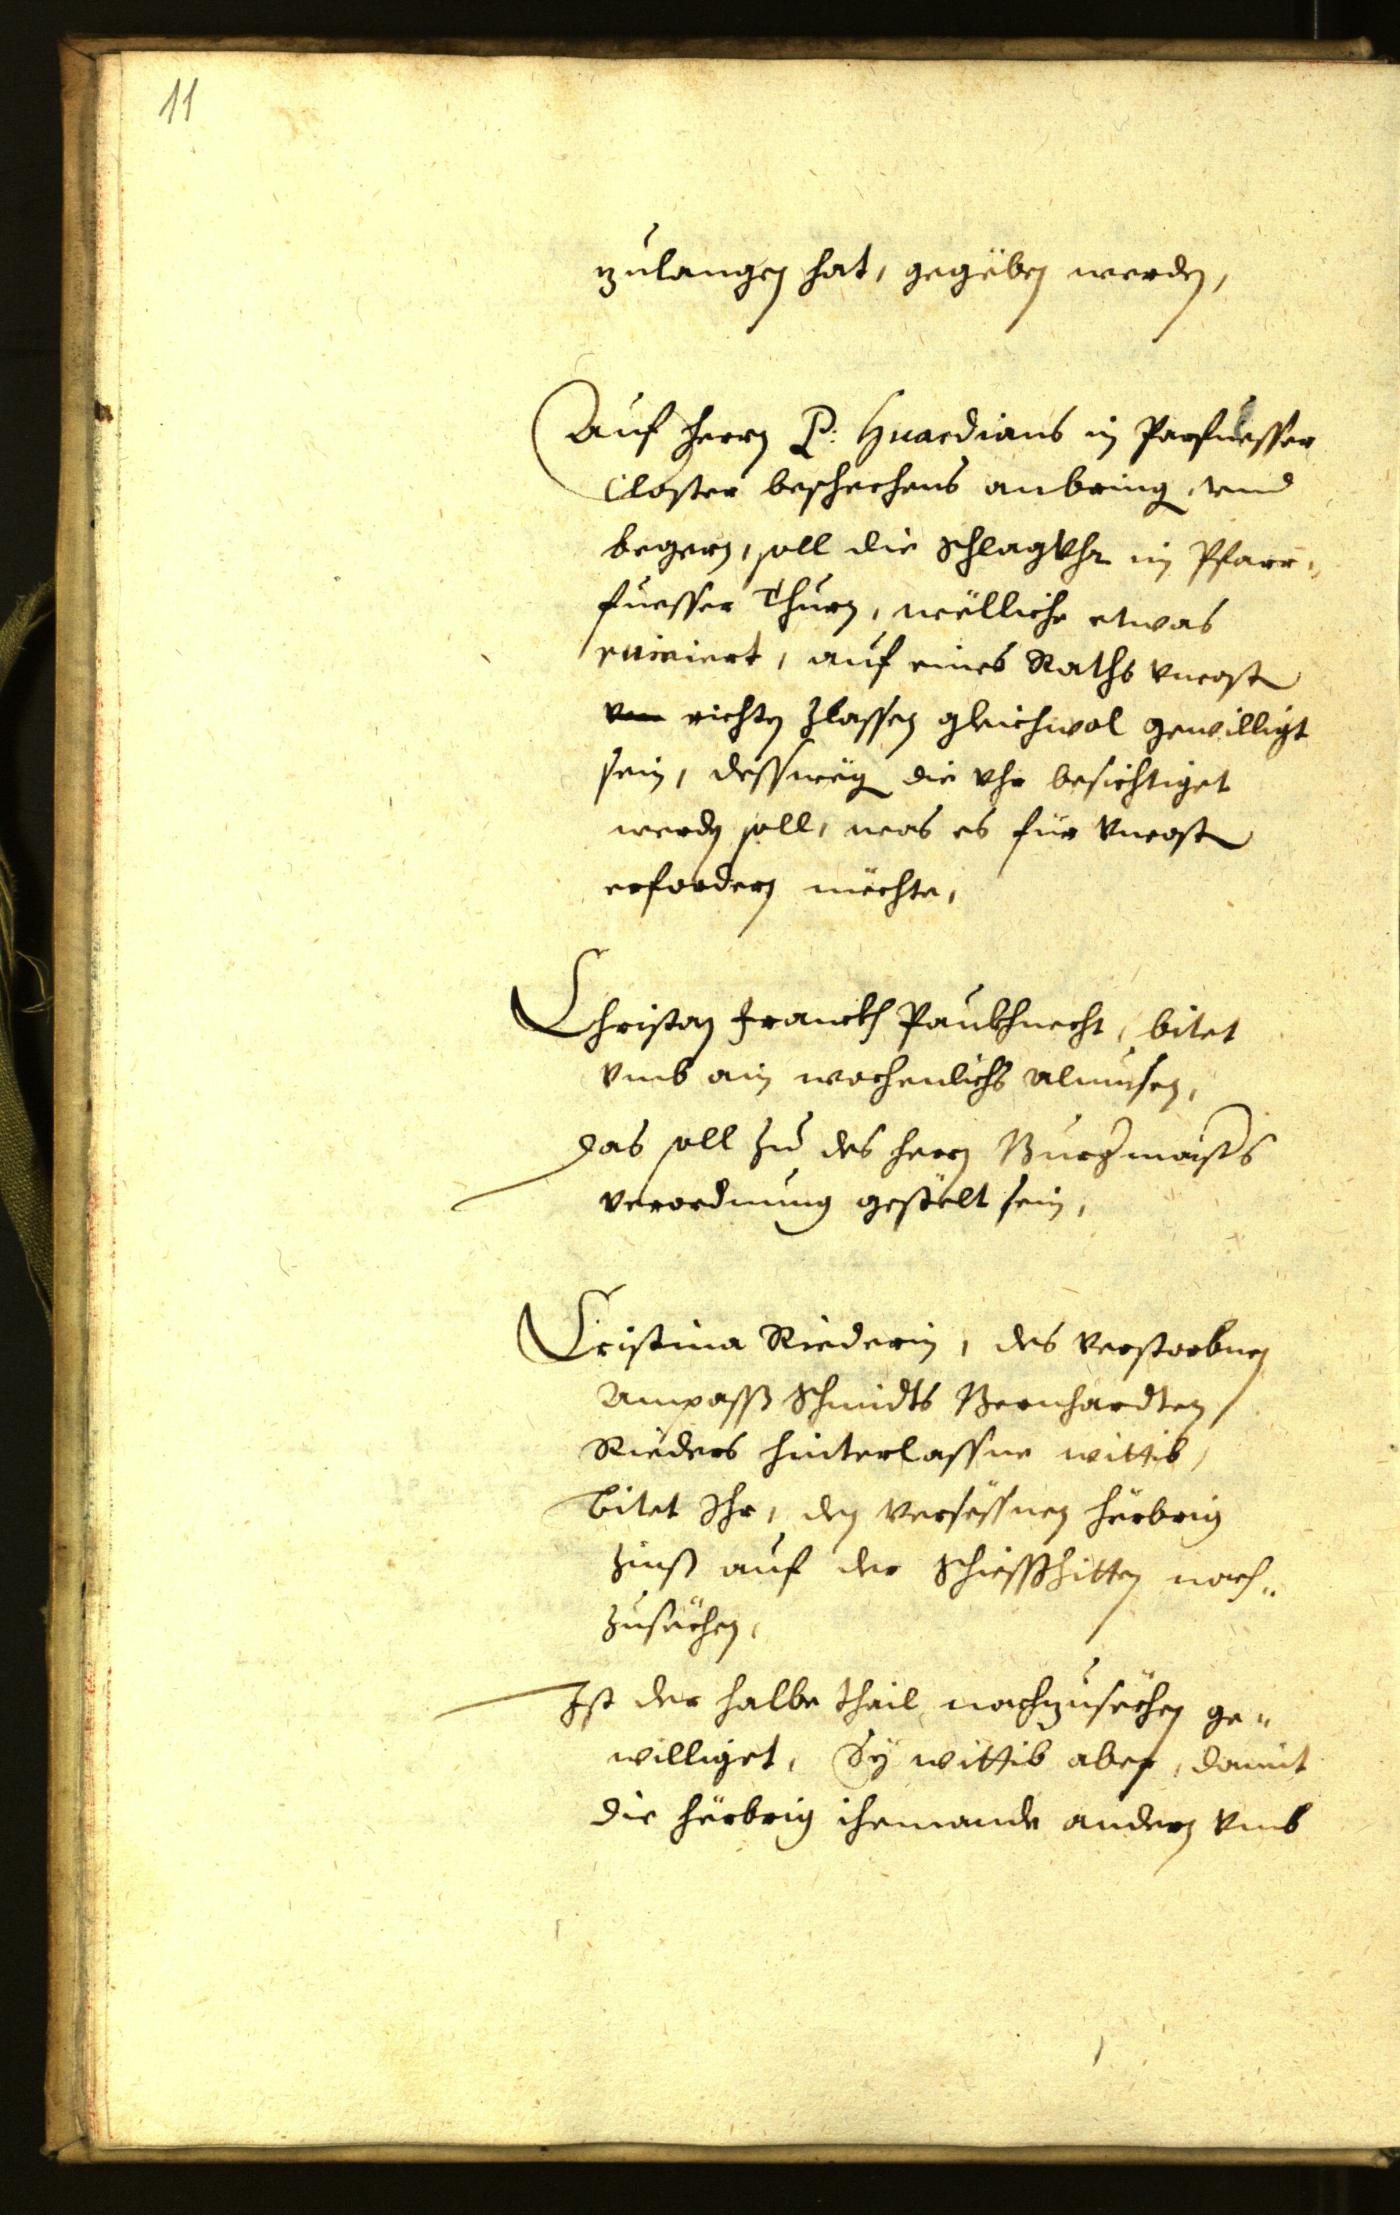 11
zulangen hat, gegëben werden,
Auf herrn P: Guardians in Parfuesser
Closter beschechens anbring, vnd
begern, soll die SchlagVhr im Pfarr„
fuesser Thurn, wëlliche etwas
ruiniert, auf eines Raths vncosten
richten zlassen gleichwol gewilligt
sein, dessweg die vhr besichtiget
werden soll, was es für vncosten
erfordern mëchte,
Christan Franckh Paukhnecht, bitet
vmb ain wochenlichs almuesen,
Das soll zu des herrn Burgmaisters
verordnung gestëlt sein,
Cristina Riederin, des verstorbnen
Ampasß Schmidts Bernhardten
Rieders hinterlassne wittib,
bitet Ihr, den versëssnen hërbrig
zinß auf der Schiesshitten nach„
zusëchen,
Ist der halbe theil nachzusëchen ge„
williget, Sÿ wittib aber, damit
die hërbrig iemande andern vmb